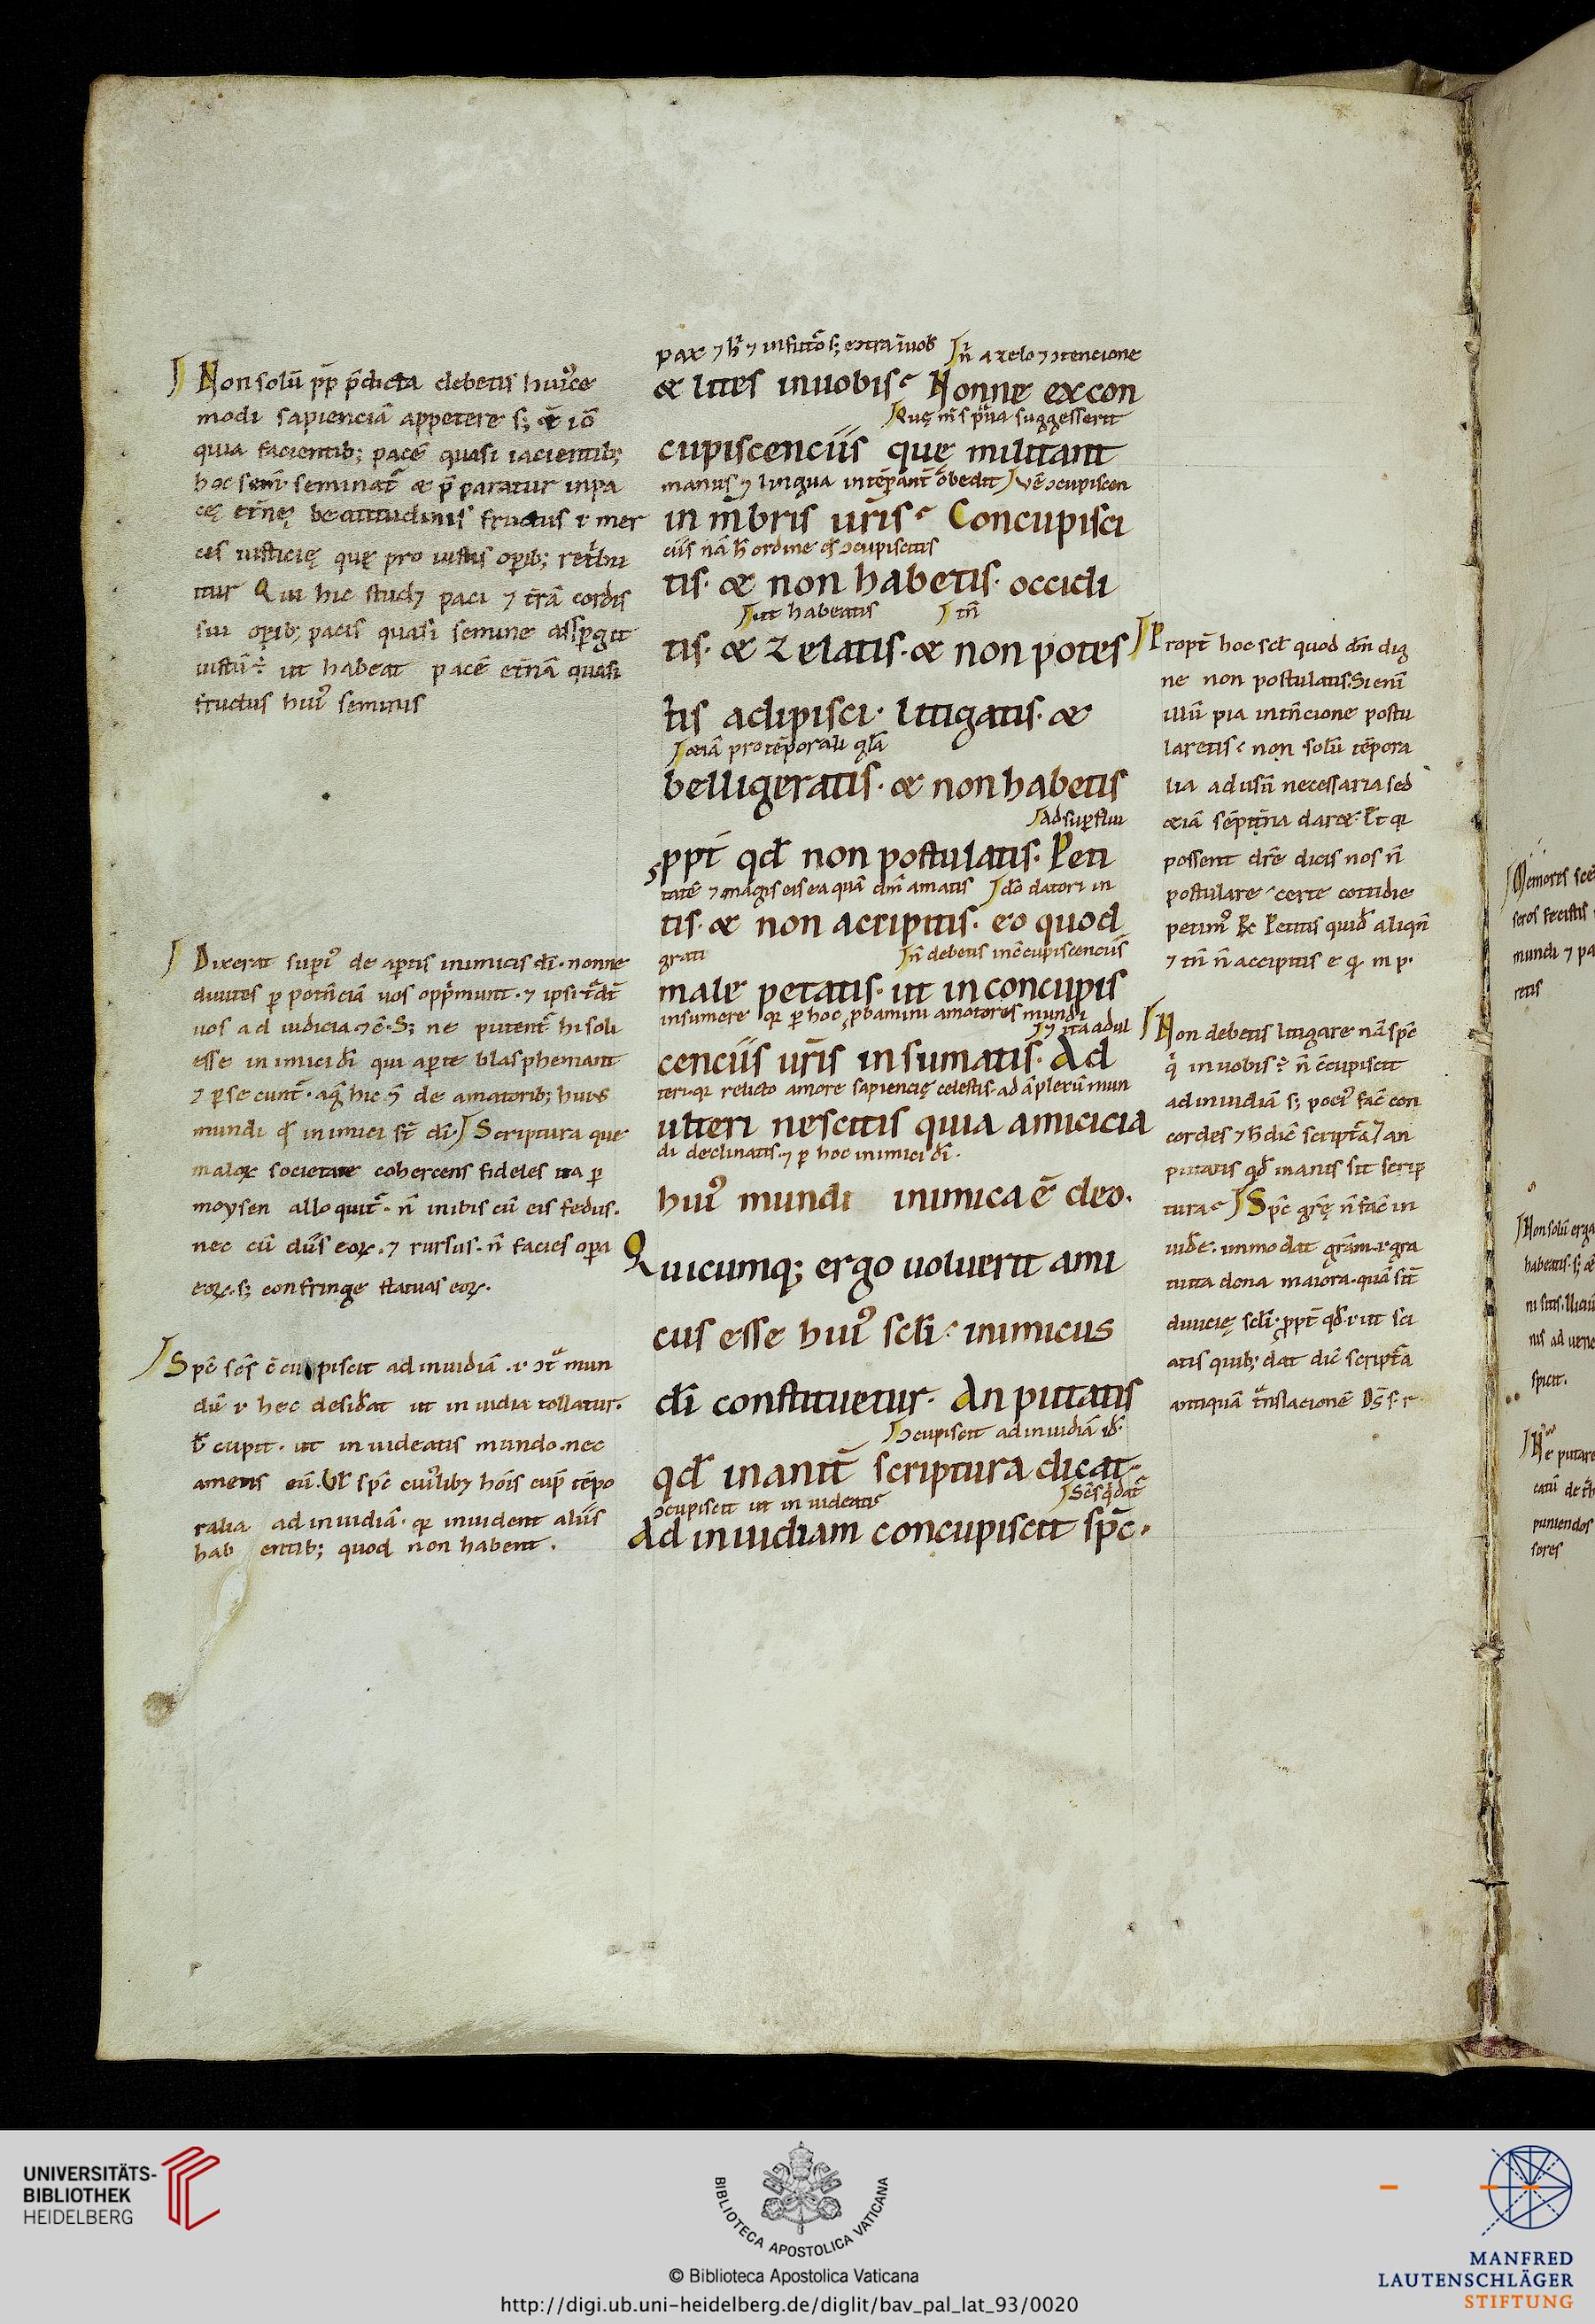 Non solũ ꝓp p̃dicta debetis huiꝰce
modi sapienciã appetere s; & iõ
quia facientib; pacẽ quasi iacientib;
hoc sem̃ seminat᷑ & p̃paratur in pa
cę et̃nę beatitudinis fructus ·i· mer
ces iusticię que pro iustis oꝑib; ret̃bu
itur Qui hic stud⁊ paci ⁊ t̃rã cordis
sui oꝑib; pacis quasi semine asspergit
iustũ ÷ ut habeat pacẽ et̃nã quasi
fructus huiꝰ seminis
Dixerat supiꝰ de aꝑtis inimicis dĩ· nonne
diuites ꝑ pot̃nciã uos opp̃munt· ⁊ ipsi
uos ad iudicia ⁊ c̃· S; ne putent᷑ hi soli
esse inimici dĩ qui aꝑte blasphemant
⁊ ꝑsecunt᷑· hic de amatorib; huis
mundi q̃ inimici st̃ dĩ· Scriptura que
maloꝝ societate cohercens fideles ita ꝑ
moysen alloquit᷑· ñ inibis cũ eis fedus·
nec cũ diis eoꝝ· ⁊ rursus· ñ facies oꝑa
eoꝝ· s; confringe statuas eoꝝ·
Sp̃c sc̃s c̃cupiscit ad inuidiã ·i· ɔt᷑ mun
dũ ·i· hec desid̃at ut inuidia tollatur·
cupit· ut inuideatis mundo· nec
ametis eũ· Ul̃ sp̃c cuiꝰlib⁊ hõis cup̃ tẽpo
ralia ad inuidiã· inuident aliis
habentib; quod non habent·
pax ⁊ ħ ⁊ in futũo s; extra uob̃ ñ a zelo ⁊ ɔtencione
& lites in uobis? Nonne ex con
Quę m̃s p̃ua suggesserit
cupiscenciis que militant
manus ⁊ lingua intẽperant̃ obedit Vẽ ɔcupiscen
in m̃bris ur̃is? Concupisci
ciis nã ħ ordine q̃ ɔcupiscitis
tis· & non habetis· occidi
ut habeatis tñ
tis· & zelatis· & non potes
tis adipisci· litigatis· &
&iã pro tẽporali gl̃a
belligeratis· & non habetis
Ad supꝑflui
ꝓpt̃ qd̃ non postulatis· Peti
tatẽ ⁊ magis eis ea quã dñi amatis dõ datori in
tis· & non accipitis· eo quod
grati ñ debetis in c̃cupiscenciis
male petatis· ut in concupis
insumere ꝑ hoc ꝓbamini amatores mundi
⁊ ita adul
cenciis ur̃is insumatis· Ad
teri· relicto amore sapiencię celestis· ad ãplexũ mun
ulteri nescitis quia amicicia
di declinatis· ⁊ ꝑ hoc inimici dĩ·
huiꝰ mundi inimica ẽ deo·
Quicumq; ergo uoluerit ami
cus esse huiꝰ scl̃i· inimicus
dĩ constituetur· An putatis
ɔcupiscit ad inuidiã id̃·
qd̃ inanit᷑ scriptura dicat·
ɔcupiscit ut inuideatis Sc̃s q̃ dat᷑
Ad inuidiam concupiscit sp̃c·
Propt̃ hoc scl̃ quod dñi dig
ne non postulatis Si eni
illũ pia int̃ncione postu
laretis? non solũ tẽpora
lia ad usũ necessaria sed
&iã sẽpit̃na dar&· Et
possent dic̃e dicis nos ñ
postulare· certe cotidie
petimꝰ R̃c Petitis quid̃ aliqñ
⁊ tñ ñ accipitis e· q̃ m· p·
Non debetis litigare nã sp̃c
q̃ in uobis ÷ ñ c̃cupiscit
ad inuidiã s; pociꝰ fac̃ con
cordes ⁊ ħ dic̃ script̃a an
putatis qd̃ inanis sit scrip
tura? Sp̃c gr̃ę ñ fac̃ in
uid̃e· immo dat gr̃am ·i· gra
tuita dona maiora· quã st̃
diuicię scl̃i· ꝓpt̃ qd̃ ·i· ut sci
atis quib; dat dic̃ script̃a
antiquã t̃nslacionẽ Ds̃ s· r·
Memores
seros fecistis
mundi ⁊ pa
retis
Non solũ erga
habeatis· s;
nis ad uene
spicit·
Ne putare
puniendos
sores
UNIVERSITÄTS-
BIBLIOTHEK
HEIDELBERG
BIBLIOTECA APOSTOLICA VATICANA
© Biblioteca Apostolica Vaticana
http://digi.ub.uni-heidelberg.de/diglit/bav_pal_lat_93/0020
MANFRED
LAUTENSCHLÄGER
STIFTUNG